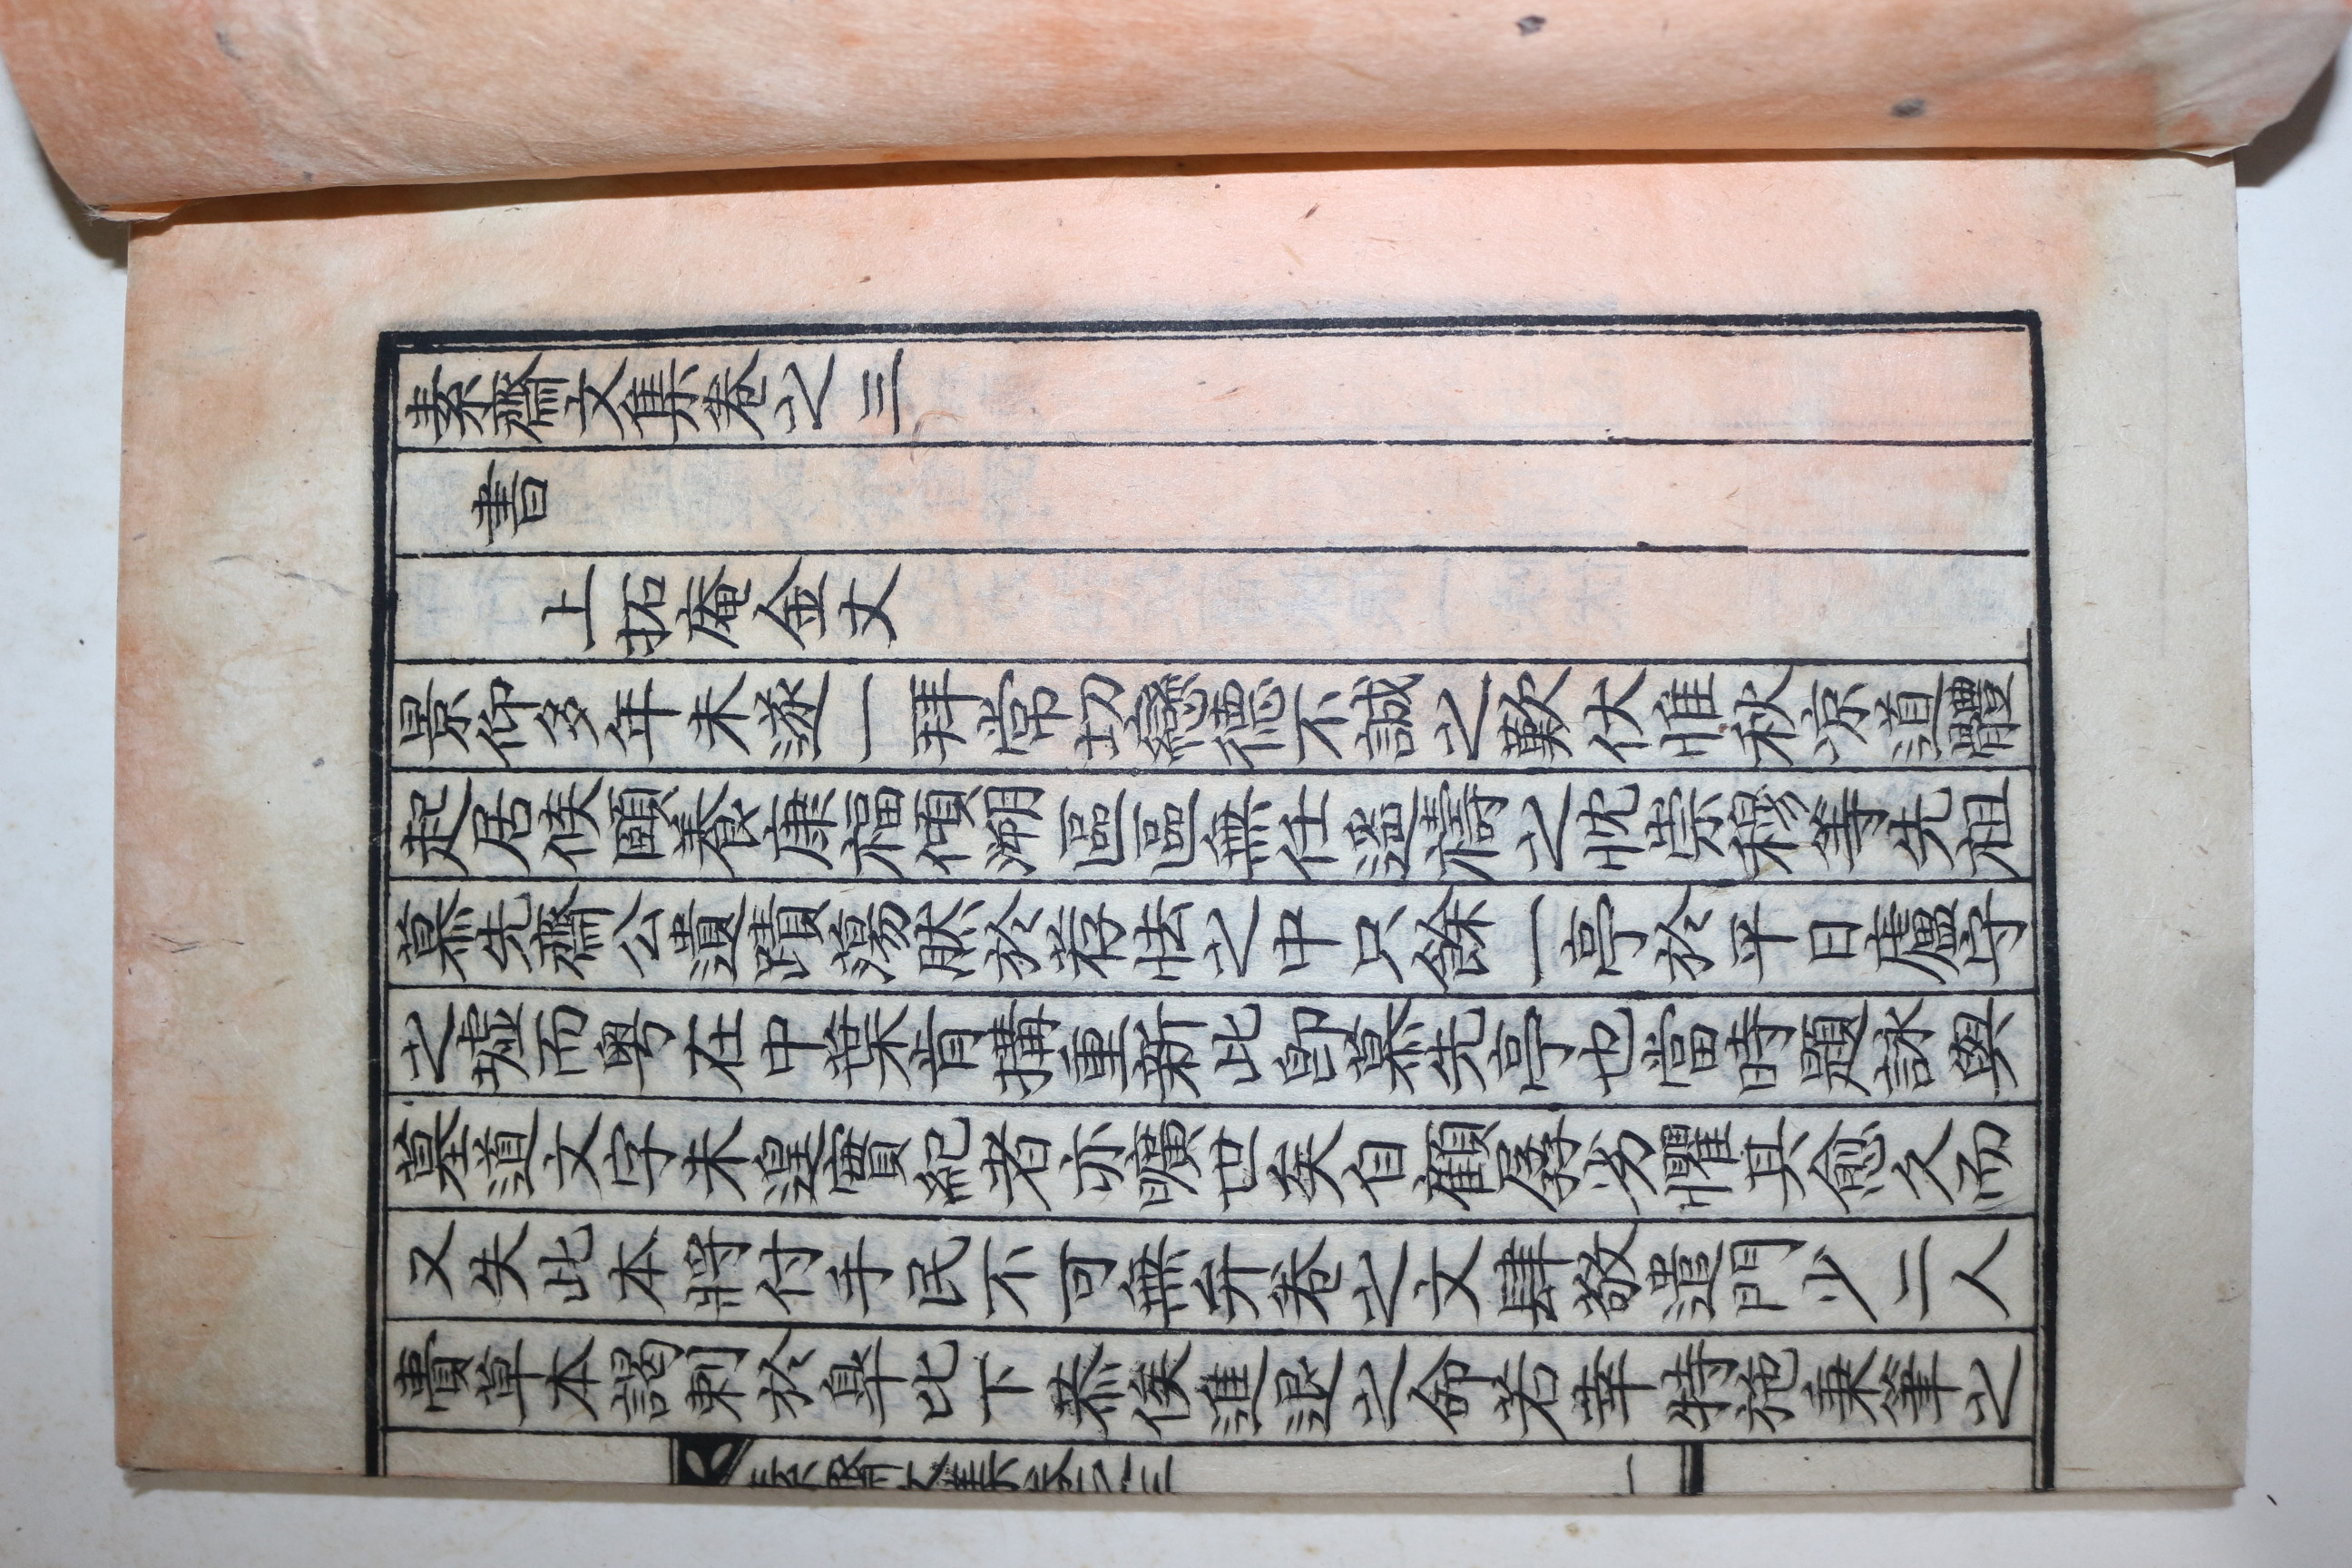 素齋文集卷之三
書
上拓庵金丈
景仰多年未遂一拜常切戀德不誠之歎伏惟秋凉道體
起居候頤養康福傾溯區區無任遙禱之忱崇穆等先祖
慕先齋公遺蹟蕩然於荐怯之中只餘一亭於平日廬守
之墟而粤在中葉肯搆重新此卽慕先亭也當時題詠與
墓道文字未遑實紀者亦曠世矣自顧孱劣懼其愈久而
又失此本將付手民不可無弁卷之文肆敬遣門少二人
賷草本謁刺於皐比下恭俟進退之命若幸特施秉筆之
素齋文集卷之三
一